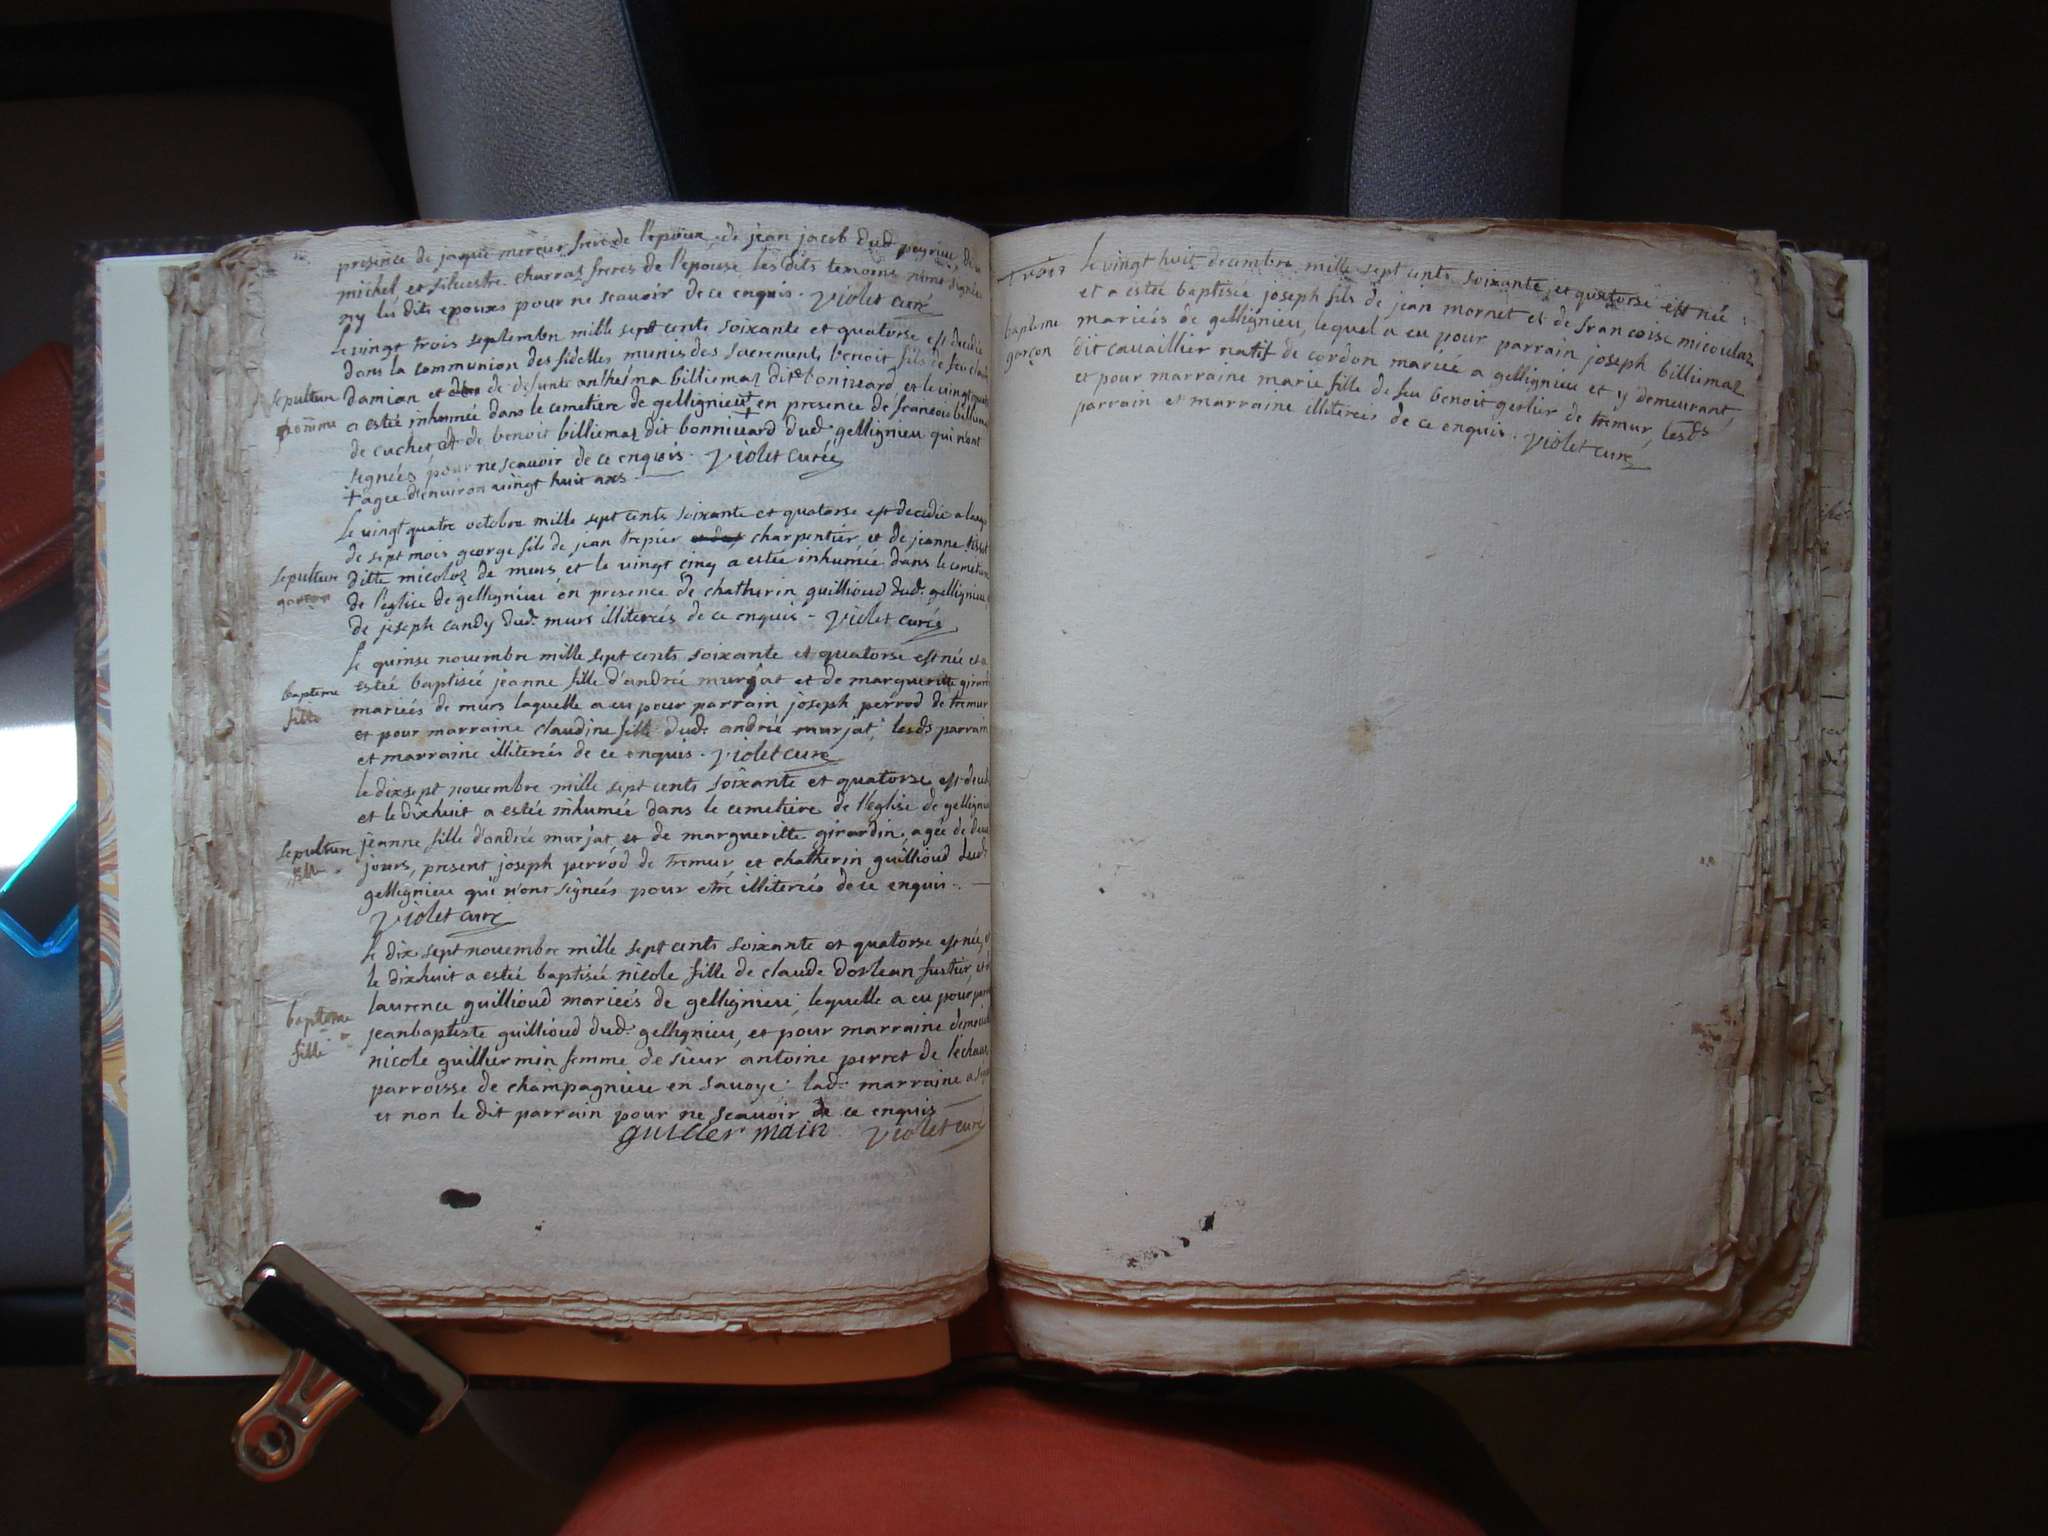 presence de jaque mercier frere de l'epoux, de jean jacob dud peyrieu, de
michel et silvestre charraz freres de l'epouse les dits temoins n'ont signées
ny les dits epouxes pour ne scauoir de ce enquis. violet curé
le vingt trois septembre mille sept cents soixante et quatorse est decedé
dans la communion des fidelles munis des sacrements benoit fils de feu
sepulture damian et de defunte anthelma billiemaz dit bonivard et le vingt quatre
homme a estée inhumée dans le cemetiere de gellignieu + en presence de francois billiemaz
de cuchet et de benoit billiemaz dit bonnivard dud. gelligneu qui n'ont
signées pour ne scauoir de ce enquis. violet curée
+ agée d'environ vingt huit ans
le vingt quatre octobre mille sept cents soixante et quatorse est decedée a l'age
de sept mois george fils de jean trepier charpentier et de jeanne
sepulture ditte micoloz de murs, et le vingt cinq a estée inhumée dans le cemetiere
garcon de l'eglise de gellignieu en presence de chatherin guillioud dud. gelligneu
de joseph candy dud. murs illiterées de ce enquis - violet curée
le quinse novembre mille sept cents soixante et quatorse est née et a
bapteme estée baptisée jeanne fille d'andrée murjat et de marguerite girard
fille mariées de murs laquelle a eu pour parrain joseph perrod de tremur
et pour marraine claudine fille dud. andrée murjat, lesds parrain
et marraine illiterées de ce enquis. violet curé
le dixsept novembre mille sept cents soixante et quatorse est deced
et le dixhuit a estée inhumée dans le cemetiere de l'eglise de gelligne
sepulture jeanne fille d'andrée murjat et de marguerite girardin, agée de deux
fille jours, present joseph perrod de tremur et chatherin guillioud dud.
gelligneu qui n'ont signées pour etre illiterées de ce enquis. —
violet curé
le dix sept novembre mille sept cents soixante et quatorse est née, et
le dixhuit a estée baptisée nicole fille de claude dorlean et
bapteme laurence guillioud mariées de gelligneu, lequelle a eu pour parrain
jeanbaptiste guillioud dud. gelligneu, et pour marraine demoiselle
fille nicole guillermin femme de sieur antoine perret de
parroisse de champagnieu en savoye. lad. marraine a signé
et non le dit parrain pour ne scauoir de ce enquis
guillermain violet curé
trois le vingt huit decembre mille sept cents soixante et quatorse est née
et a estée baptisée joseph fils de jean mornet et de francoise micoulaz
bapteme mariées de gelligneu, lequel a eu pour parrain joseph billiemaz
garcon dit cavaillier natif de cordon mariée a gelligneu et y demeurant,
et pour marraine marie fille de feu benoit gerlier de tremur, lesds
parrain et marraine illiterées de ce enquis. violet curé